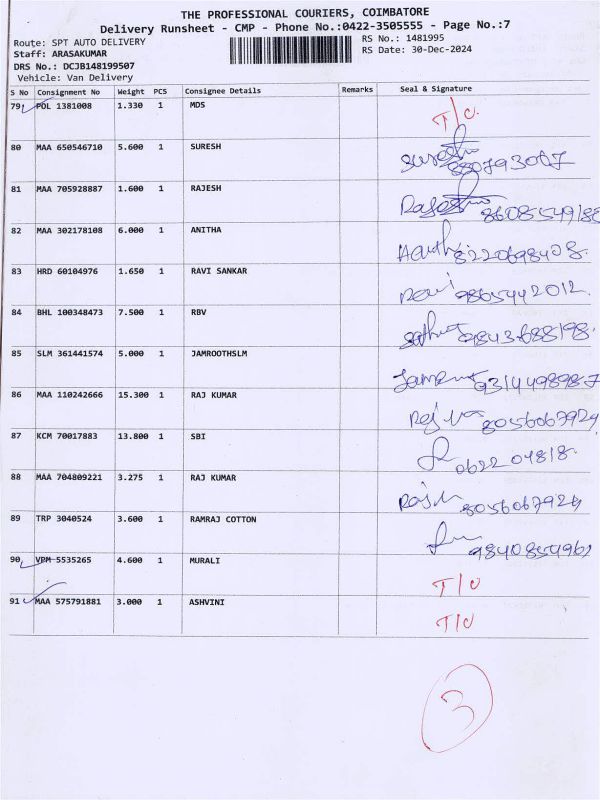 THE PROFESSIONAL COURIERS, COIMBATORE
Delivery Runsheet - CMP - Phone No.:0422-3505555 - Page No.:7
Route: SPT AUTO DELIVERY
RS No.: 1481995
Staff: ARASAKUMAR
RS Date: 30-Dec-2024
DRS No.: DCJB148199507
Vehicle: Van Delivery
S No Consignment No Weight PCS Consignee Details Remarks Seal & Signature
79 PDL 1381008 1.330 1 MDS T/C
80 MAA 650546710 5.600 1 SURESH Suresh
81 MAA 705928887 1.600 1 RAJESH Rajesh
82 MAA 302178108 6.000 1 ANITHA 8220698408
83 HRD 60104976 1.650 1 RAVI SANKAR Ravi 9865442012
84 BHL 100348473 7.500 1 RBV 9843688198
85 SLM 361441574 5.000 1 JAMROOTHSLM 9314498987
86 MAA 110242666 15.300 1 RAJ KUMAR 8056067924
87 KCM 70017883 13.800 1 SBI 0622204818
88 MAA 704809221 3.275 1 RAJ KUMAR 8056067924
89 TRP 3040524 3.600 1 RAMRAJ COTTON
90 VPM 5535265 4.600 1 MURALI T/C
91 MAA 575791881 3.000 1 ASHVINI T/C
3